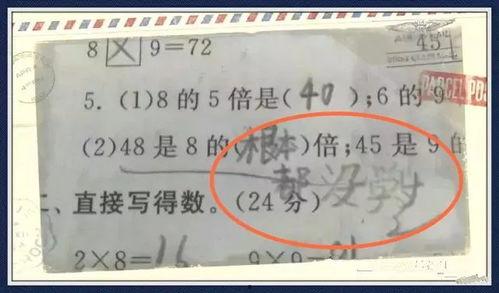 8 × 9=72
5. (1)8的5倍是(40);6的9
(2)48是8的(根本)倍;45是9的
都没学
二、直接写得数。(24分)
2×8=16 9×9=81
PARCEL PO